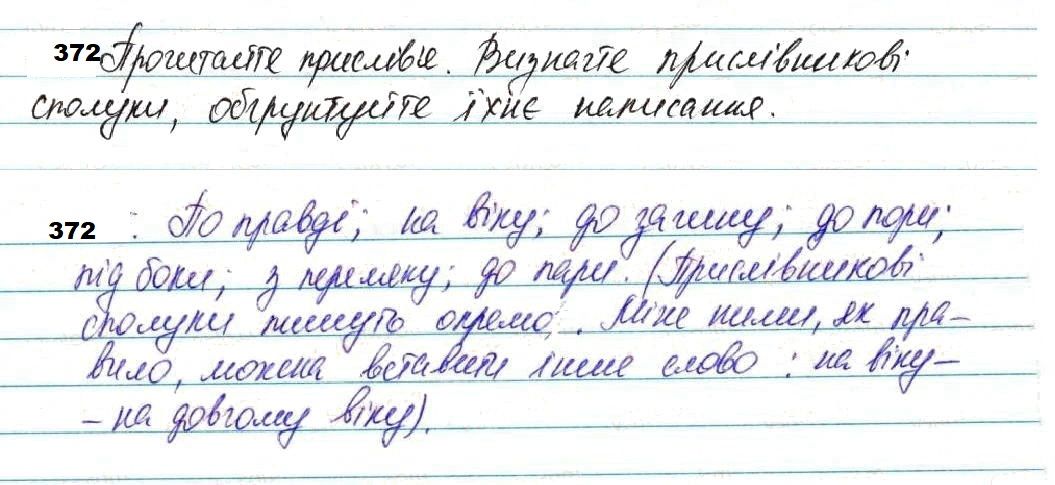 372 Прочитайте прислів'я. Визначте прислівникові
сполуки, обґрунтуйте їхнє написання.
372 : По правді; на віку; до загину; до пори;
під боки; з переляку; до пари. (Прислівникові
сполуки пишуть окремо. Між ними, як пра-
вило, можна вставити інше слово: на віку-
- на довгому віку).